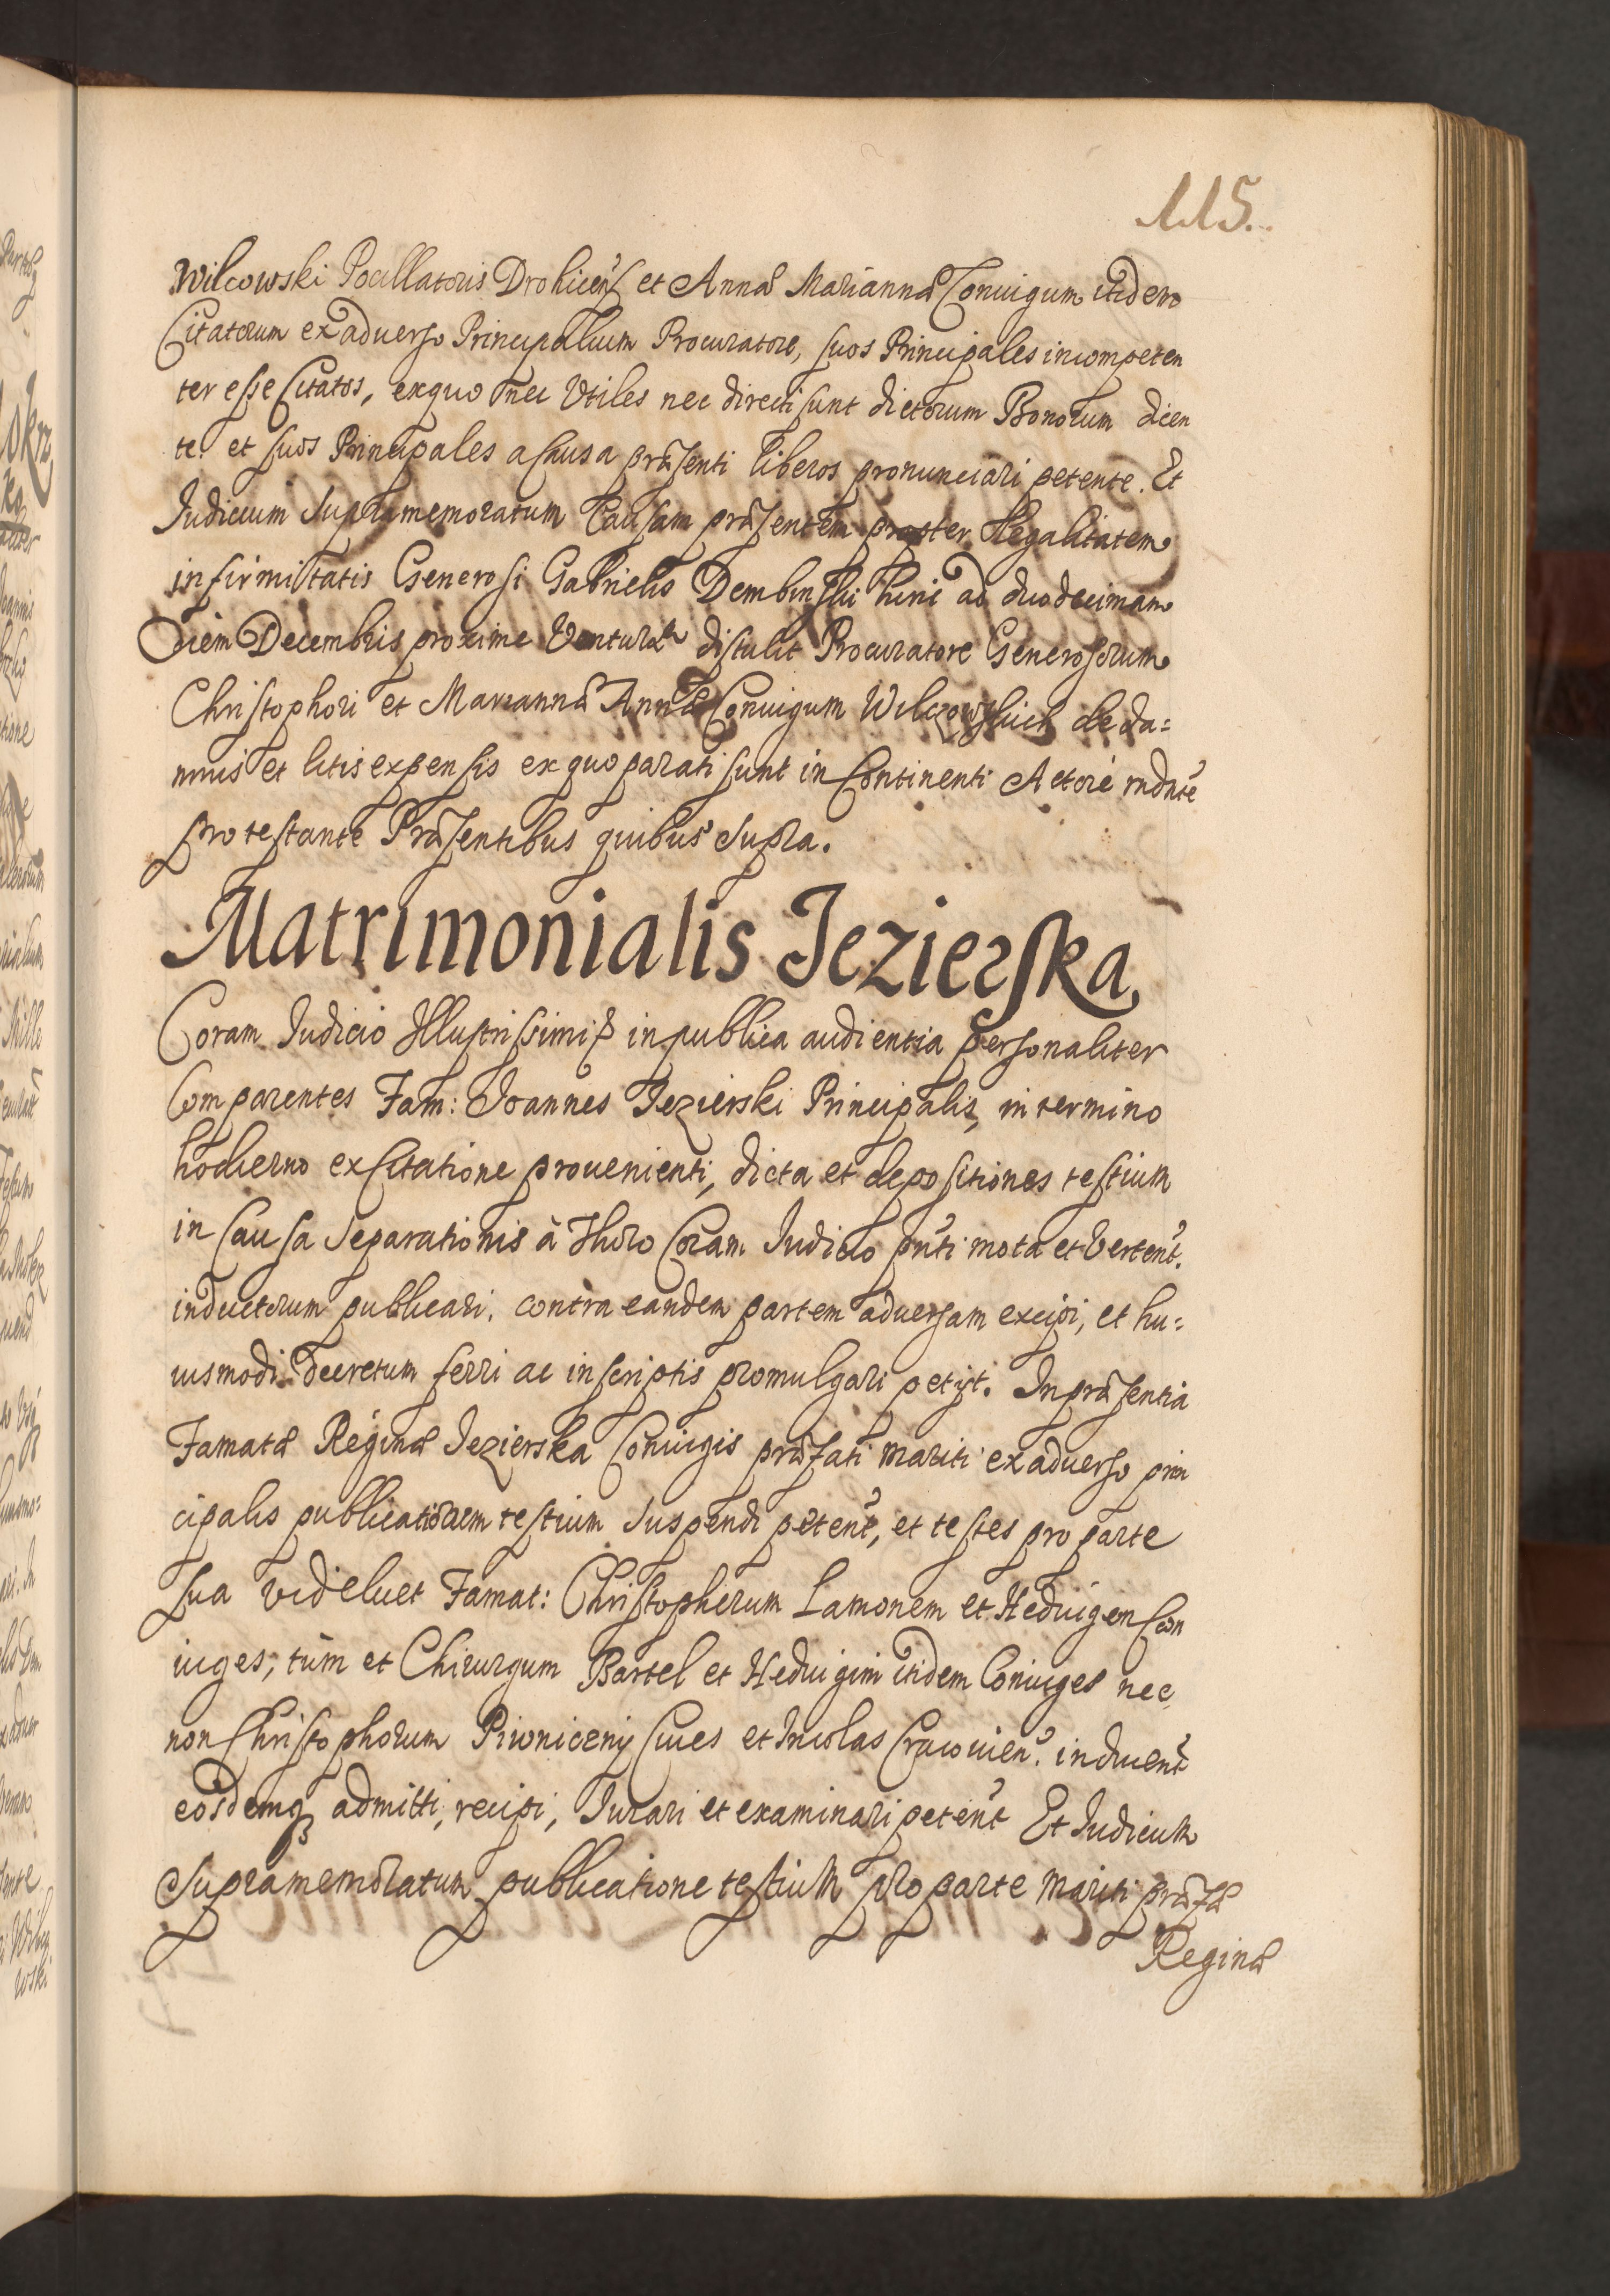 115.
Wilcowski Pocillatoris Drohicen̄ et Annæ Mariannæ Coniugum itidem
Citatorum ex aduerso Principalium Procuratore, suos Principales incompeten
ter esse Citatos, ex quo nec Vtiles nec directi sunt dictorum Bonorum dicen
te et suos Principales a Causa præsenti liberos pronunciari petente. Et
Iudicium Supramemoratum Causam præsentem propter legalitatem
infirmitatis Generosi Gabrielis Dembinski hinc ad duodecimam
diem Decembris proxime Venturam distulit Procuratore Generosorum
Christophori et Mariannæ Annæ Coniugum Wilczowskich de da=
mnis et litis expensis ex quo parati sunt in Continenti Actore
protestante Præsentibus quibus Supra.
Matrimonialis Jezierska
Coram Iudicio Illustrissimi in publica audientia personaliter
Comparentes Fam: Joannes Jezierski Principalis, in termino
hodierno ex Citatione prouenienti, dicta et depositiones testium
in Causa Separationis à Thoro Coram Iudicio pn̄ti mota et Verten̄t.
inductorum publicari, contra eandem partem aduersam excipi, et hu=
iusmodi decretum ferri ac in scriptis promulgari petijt. In præsentia
Famatæ Reginæ Jezierska Coniugis præfati mariti ex aduerso prin
cipalis publicationem testium Suspendi peten̄t, et testes pro parte
sua videlicet Famat: Christopherum Lamonem et Hedvigem Con
iuges, tùm et Chirurgum Bartel et Hedvigim itidem Coniuges nec
non Christophorum Piwniczny Ciues et Incolas Cracouien̄. inducen̄t
eosdemq₃ admitti, recipi, Iurari et examinari peten̄t Et Iudicium
Supramemoratum publicatione testium pro parte mariti præfæ
Reginæ